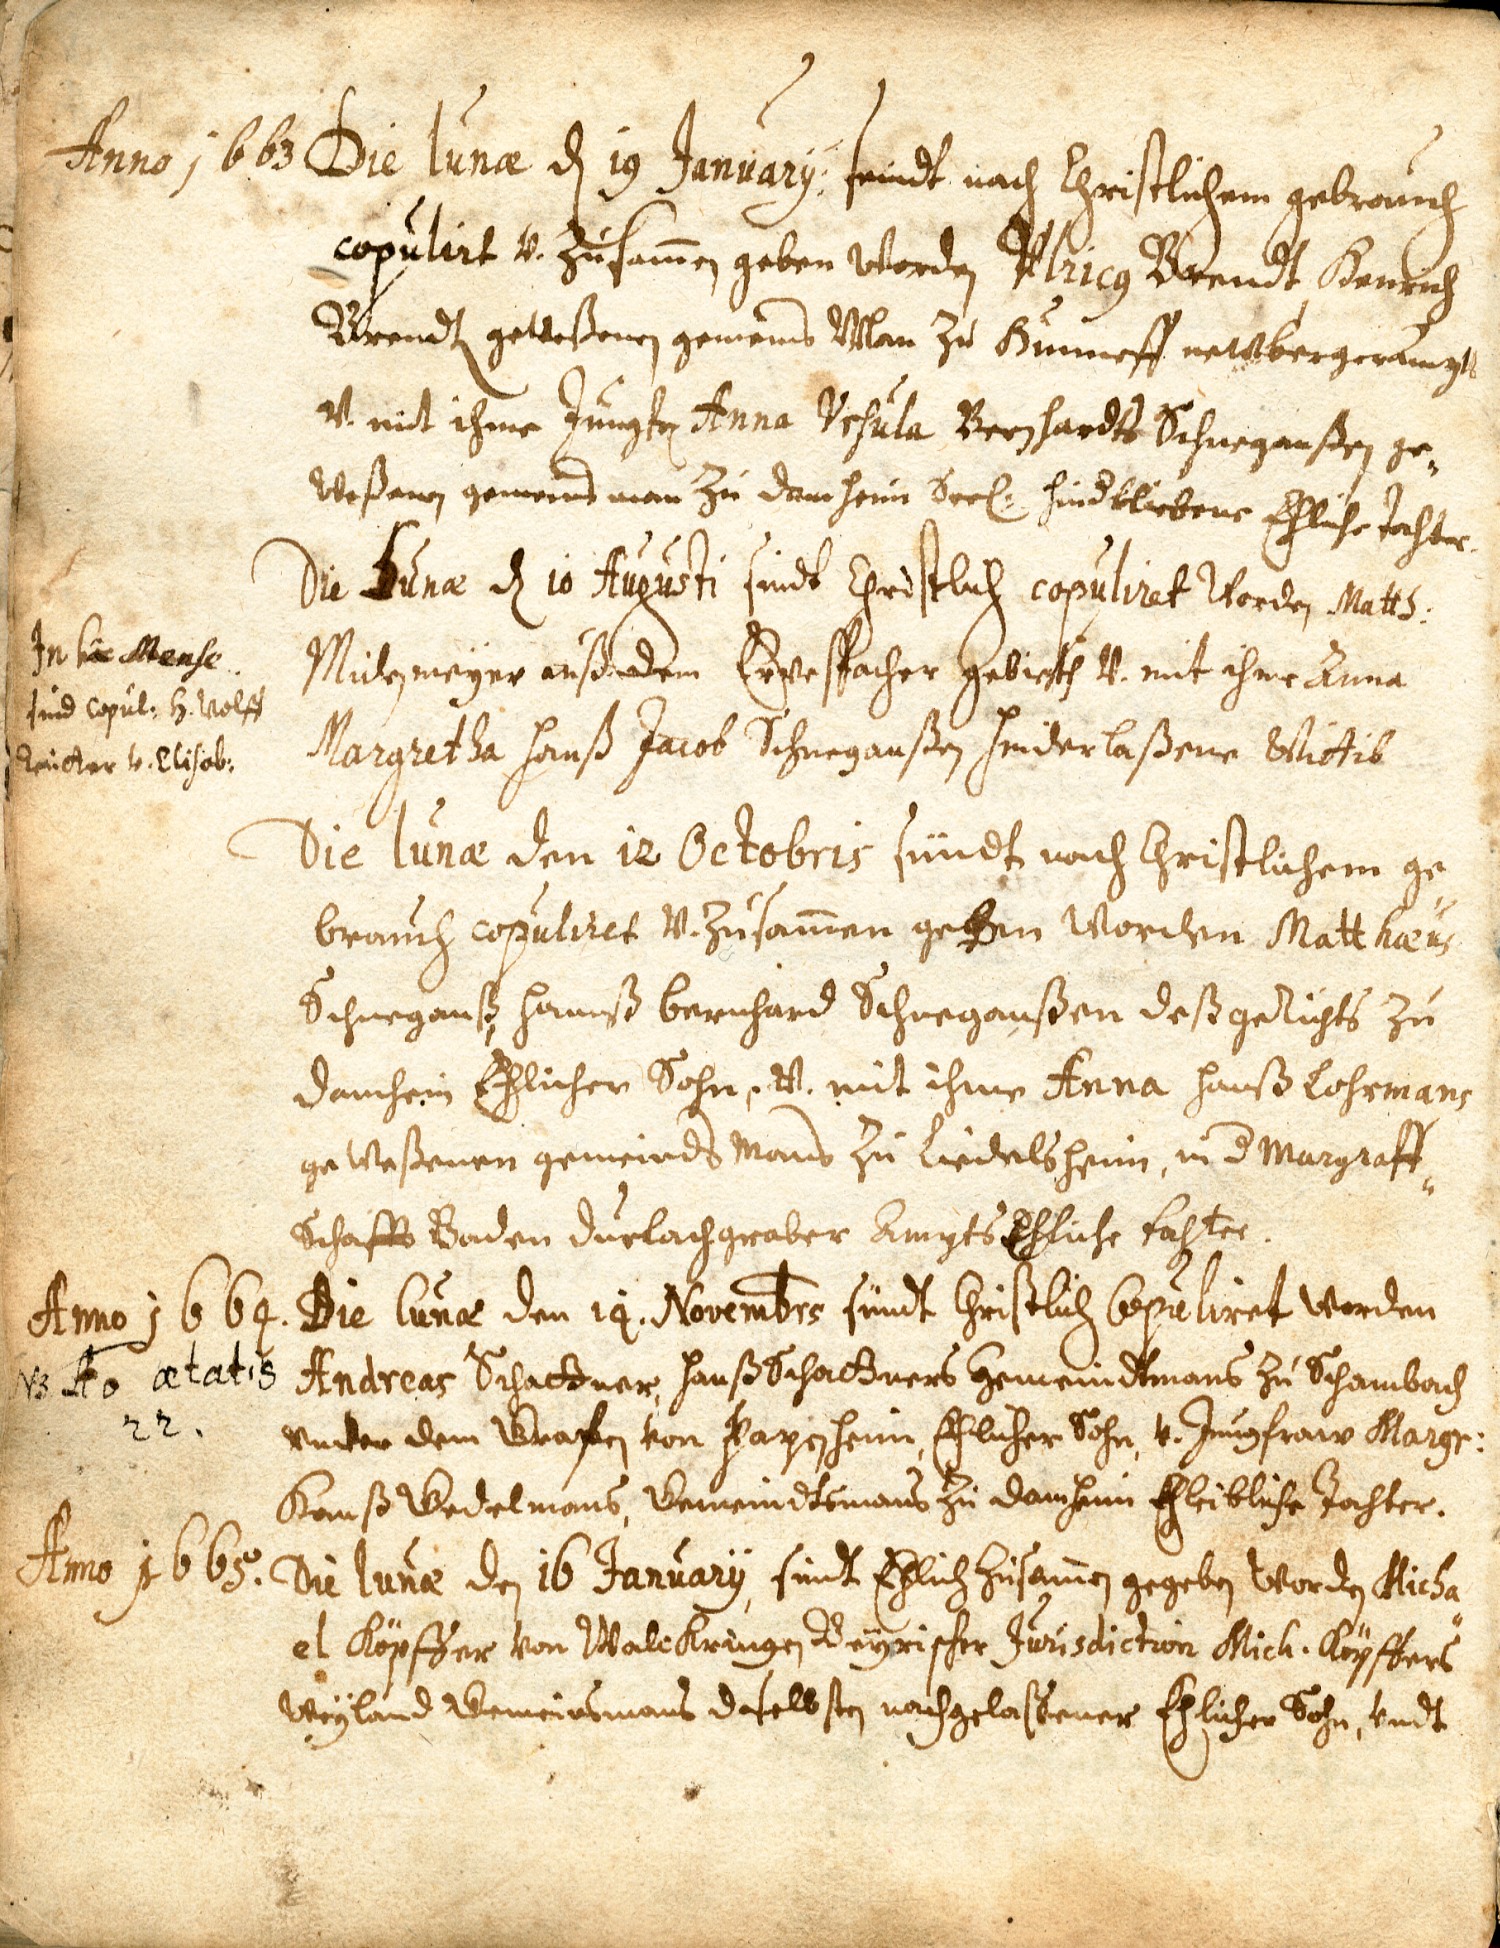 Anno 1663 Die lunæ d 19 January: seindt nach Christlichem gebrauch
copulirt v. Zusam̄en geben worden Ulricq Brendt, Henrich
Brendt geweßenen gemeins Man zu
v. mit ihme Jungfr Anna Ursula Bernhardts Schneganßen ge„
weßenen gemeind man zu Damheim Seel: hindbliebene Ehliche Tochter.
Die Lunæ d 10 Augusti sindt Christlich copuliret worden Matth:
auß dem gebieth v. mit ihme Anna
Margretha Hanß Jacob Schneganßen hinderlaßene Wittib
In hie Mense
sind copul: H. Wolff
v. Elisab:
Die lunæ den 12 Octobris sündt nach Christlichem ge„
brauch copuliret v. Zusam̄en geben worden Matthæus
Schneganß, Hannß bernhard Schneganßen deß gerichts zu
Damheim Ehlicher Sohn, v. mit ihme Anna Hanß Lohrmans
geweßenen gemeinds Mans zu Liedelsheim, in d Margraff„
Schafft Baden Durlachgraber Ampts Ehliche tochter.
Anno 1664. Die lunæ den 14. Novembrs sündt Christlich Copuliret worden
N3 Ao ætatis
22.
Andreas Schattner, Hanß Schattners Gemeindtmans zu Schambach
unter dem Grafen von Papenheim, Ehlicher Sohn, v. Jungfraw Margr:
Hanß Wedelmans, Gemeindtsmans zu Damheim Ehleibliche Tochter.
Anno 1665. Die lunæ den 16 January, sindt Ehlich Zusam̄en gegeben worden Micha„
el Köpffer von Beyrischer Jurisdiction Mich. Köpffers
weyland Gemeinsmans daselbsten nachgelaßener Ehlicher Sohn, undt